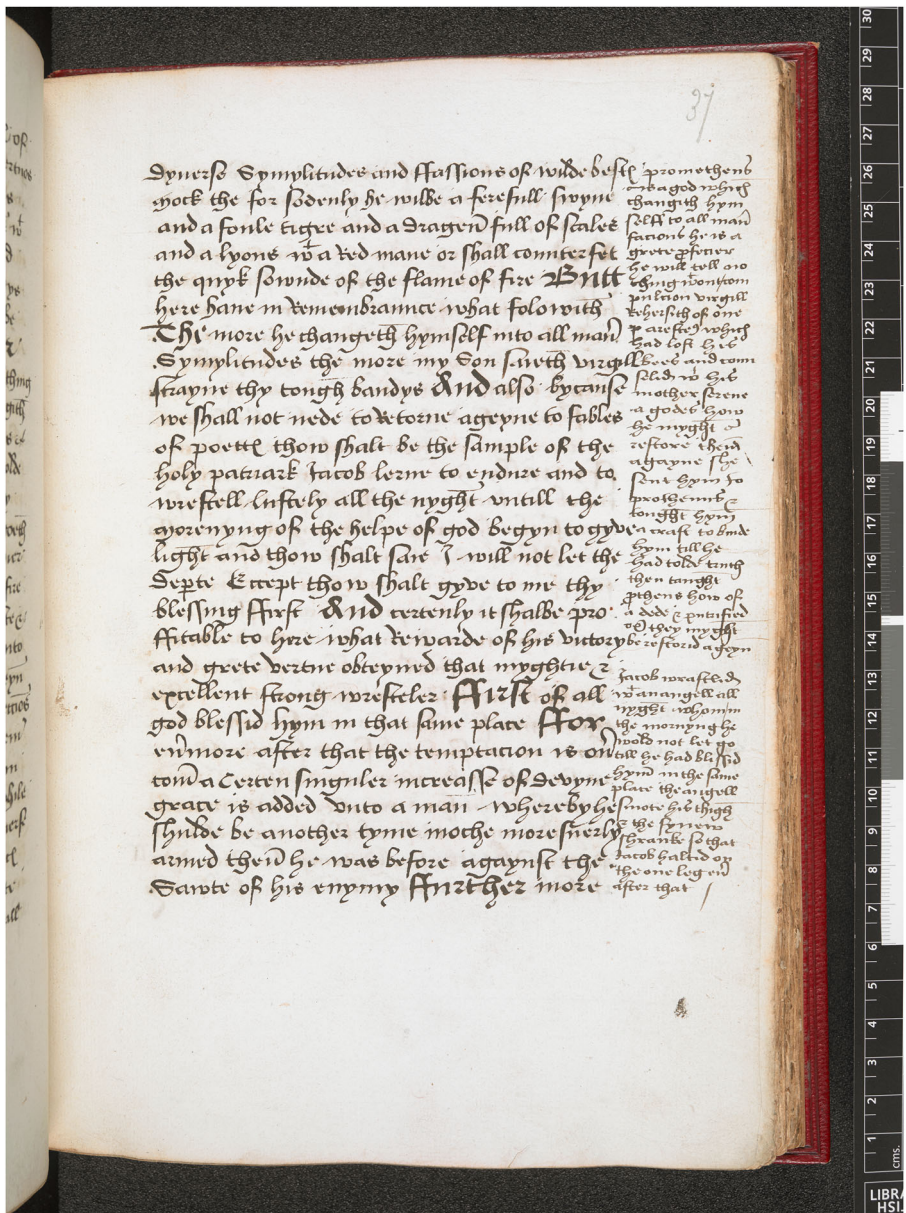 37
dyverse Symylitudes and ffassions of wilde bestꝭ
mock the for Sodenly he wilbe a ferefull swyne
and a foule tigre and a dragen̄ full of scales
and a lyons wt a Red mane or shall counterfet
the quyk sownde of the flame of fire Butt
here have in Remembraunce what folowith
The more he changeth hymself into all man̄
Symylitudes the more my Son saieth virgill
strayne thy tough bandys And also bycause
we shall not nede to Retorne ageyne to fables
of poettꝭ thow shalt be the sample of the
holy patriark Jacob lerne to endure and to
wrestell lustely all the nyght vntill the
morenyng of the helpe of god begyn to gyve
light and thow shalt saie I will not let the
dep̱te Except thow shalt gyve to me thy
blessing ffirst And certenly it shalbe pro
ffitable to here what Rewarde of his victory
and grete vertue obteyned that myghtie &
excellent strong wresteler ffirst of all
god blessid hym in that same place ffor
eu̾more after that the temptacion is ou̾
com̄ a Certen singuler increasse of devyne
grace is added vnto a man whereby he
shulde be another tyme moche more suerly
armed then̄ he was before agaynst the
Sawte of his enymy ffurther more
promotheus
is a god which
changith hym
selff to all man̄
facions he is a
grete ꝓfecier
he will tell no
thing wtout com
pulcion virgill
Rehersith of one
which
had lost his
bees and com
his
mother serene
a godes how
he myght
restore them̄
agayne she
sent hym to
protheus &
tought hym̄
a craft to binde
hym till he
had tolde truth
then taught
ꝓtheus how of
a dede
they myght
be restorid ageyn
Jacob wrasteled
wt an angell all
nyght whom in
the mornyng he
wold not let go
till he had blissid
hym̄ in the same
place the angell
smote his thigh
& the synew
shranke so that
Jacob haltid on
the one leg eu̾
after that
30
29
28
27
26
25
24
23
22
21
20
19
18
17
16
15
14
13
12
11
10
9
8
7
6
5
4
3
2
1
cms.